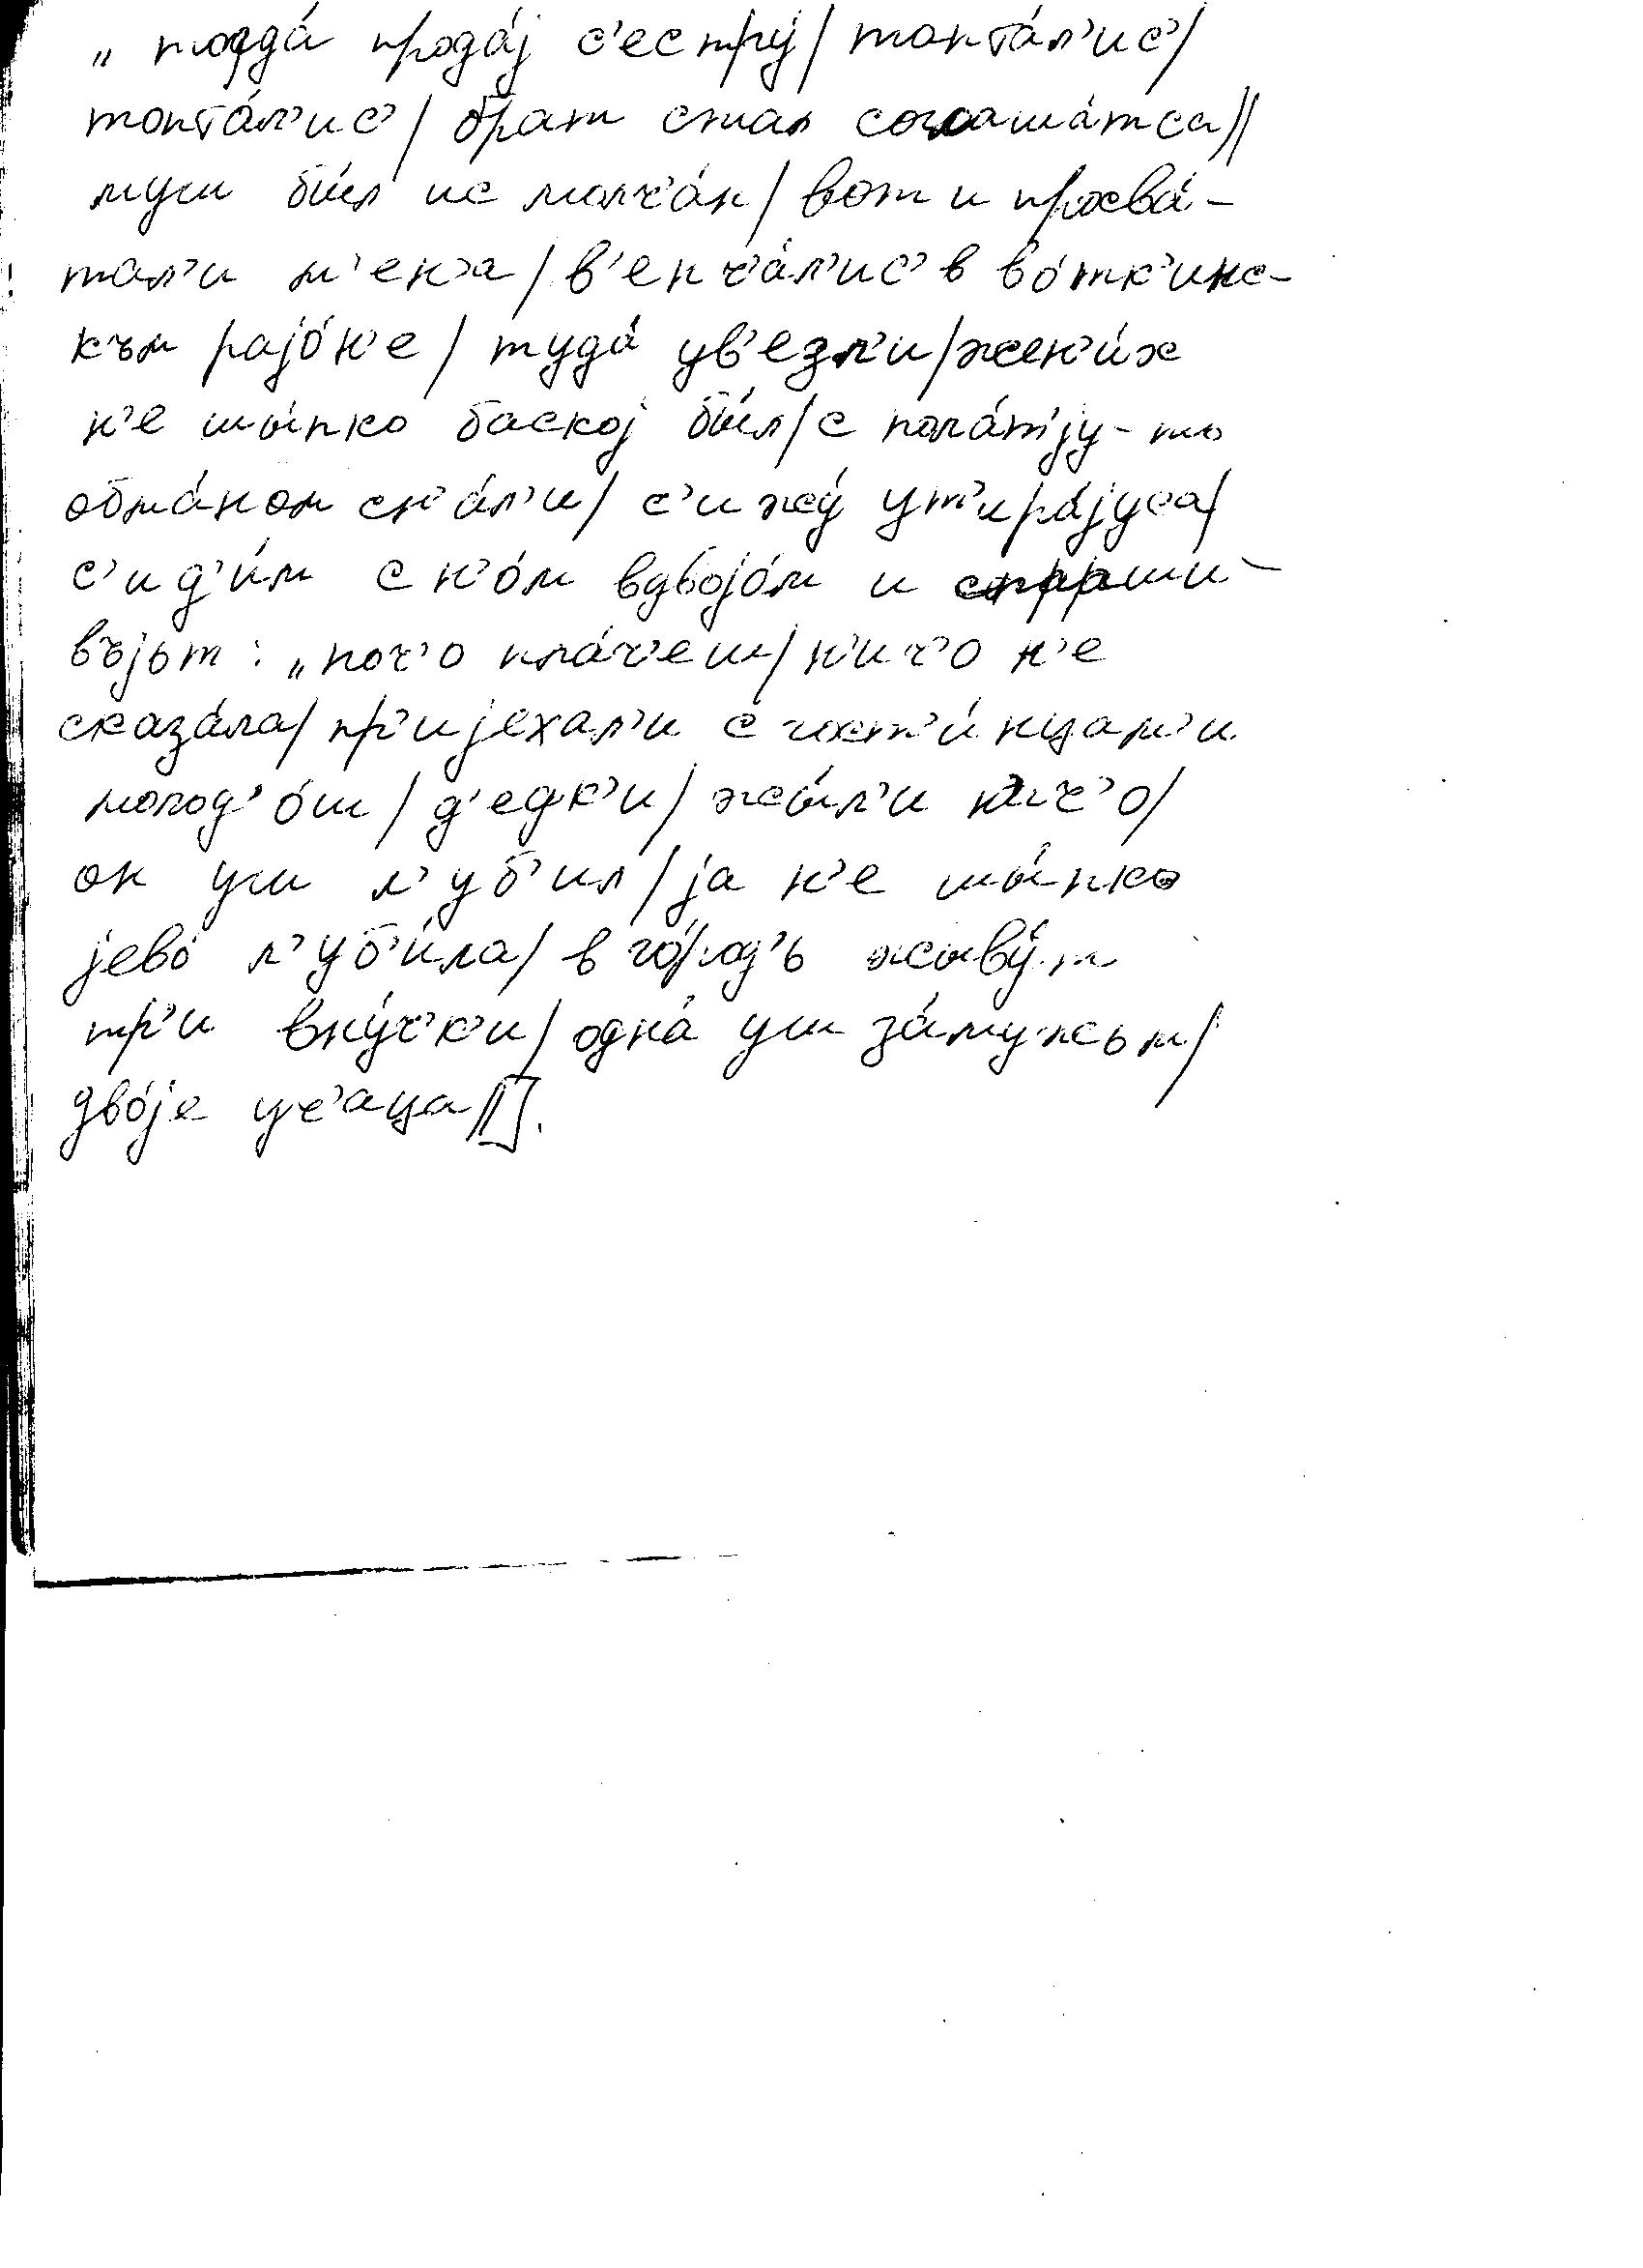 „ тогда́ прода́j с’естру́/ топта́л’ис’/
топта́л’ис’/ брат стал соглаша́тса//
муш бы́л ис молч’а́н/ вот и просва́-
тал’и м’ен’а/ в’енч’а́л’ис’ в во́тк’инс-
към раjо́н’е/ туда́ ув’езл’и/ жен’и́х
н’е шы́пко баскоj бы́л/ с пола́т’jу-то
обма́ном сн’а́л’и/ с’ижу́ ут’ира́jуса/
с’ид’и́м с н’о́м вдвоjо́м и спраши-
въjьт : „поч’о пла́ч’еш/ н’ич’о н’е
сказа́ла/ пр’иjехал’и с гост’и́нцам’и
молод’о́ш/ д’едк’и/ жы́л’и нич’о/
он уш л’уб’ил/ jа н’е шы́пко
jево́ л’уб’и́ла/ в го́род’ь жыву́т
тр’и вну́ч’к’и/ одна́ уш за́мужьм/
дво́jе уч’аца//].